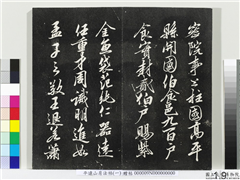 密院事上柱國高平
縣開國伯食邑九百戶
食實封貳伯戶賜紫
金魚袋范純仁器遠
任重才周識明進如
孟子之敬王退若蕭